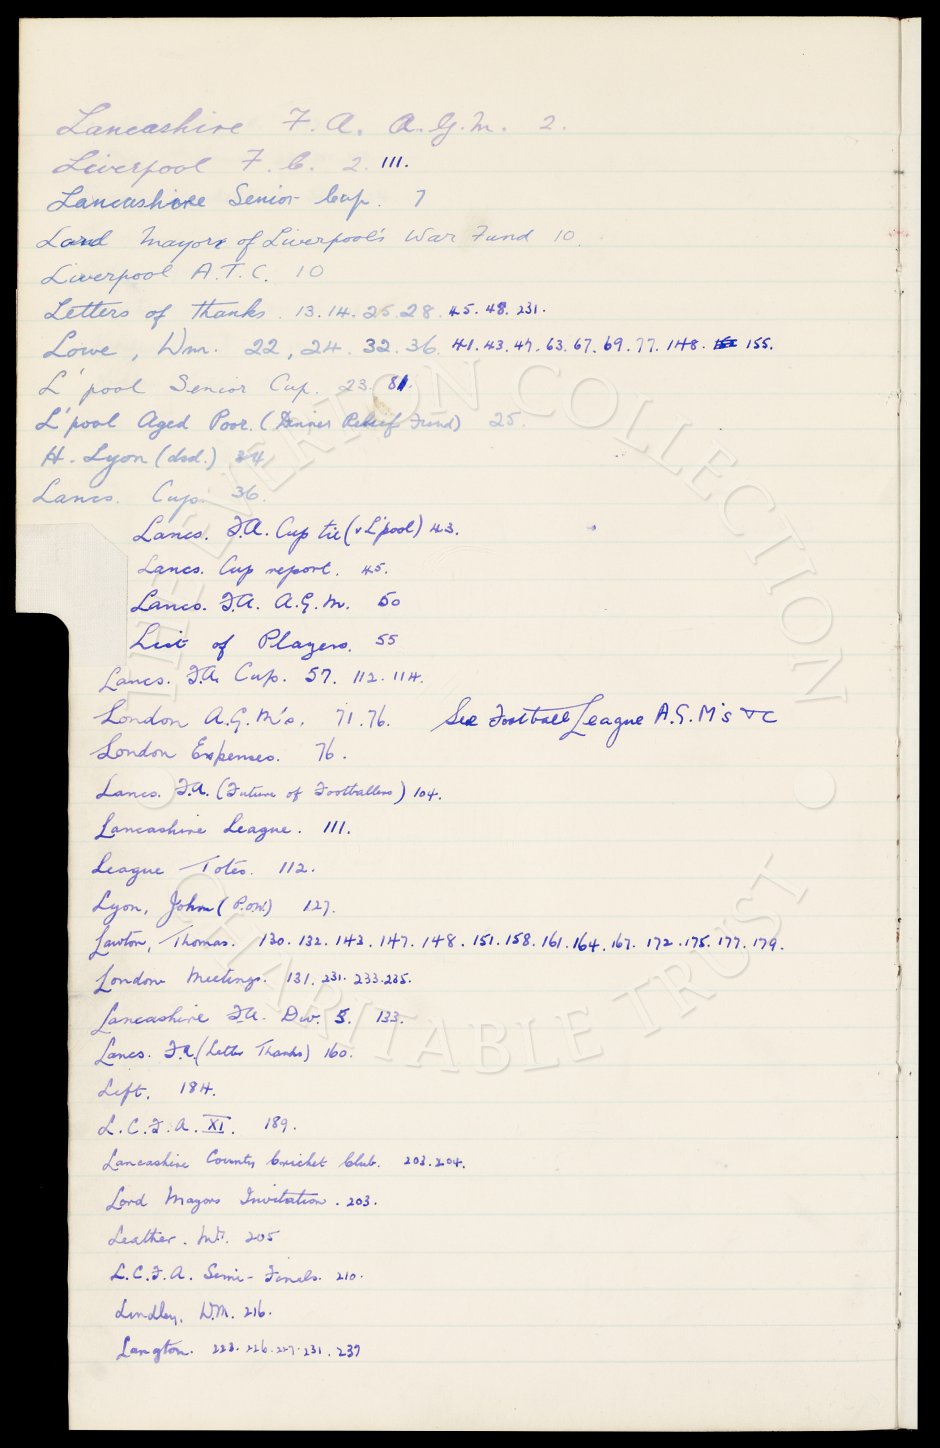 Lancashire F.A. A.G.M. 2.
Liverpool F.C. 2. 111.
Lancashire Senior Cup. 7
Lord Mayor of Liverpool's War Fund 10.
Liverpool A.T.C. 10
Letters of thanks. 13. 14. 25. 28. 45. 48. 231.
Lowe, Wm. 22, 24. 32. 36. 41. 43. 47. 63. 67. 69. 77. 148. 155.
L'pool Senior Cup. 23. 81.
L'pool Aged Poor. (Dinner Relief Fund) 25.
H. Lyon (dsd.) 34
Lancs. Cup. 36.
Lancs. F.A. Cup tie (v L'pool) 43.
Lancs. Cup report. 45.
Lancs. F.A. A.G.M. 50
List of Players. 55
Lancs. F.A. Cup. 57. 112. 114.
London A.G.M's. 71. 76. See Football League A.G.M's &c
London Expenses. 76.
Lancs. F.A. (Future of Footballers) 104.
Lancashire League. 111.
League Totes. 112.
Lyon, John (P.O.W.) 127.
Lawton, Thomas. 130. 132. 143. 147. 148. 151. 158. 161. 164. 167. 172. 175. 177. 179.
London Meetings. 131. 231. 233. 235.
Lancashire F.A. Div. 5. 133.
Lancs. F.A. (Letter Thanks) 160.
Lift. 184.
L.C.F.A. XI. 189.
Lancashire County Cricket Club. 203. 204.
Lord Mayors Invitation. 203.
Leather. Mr. 205
L.C.F.A. Semi-Finals. 210.
Lindley, W.M. 216.
Langton. 223. 226. 227. 231. 237
THE EVERTON COLLECTION
CHARITABLE TRUST